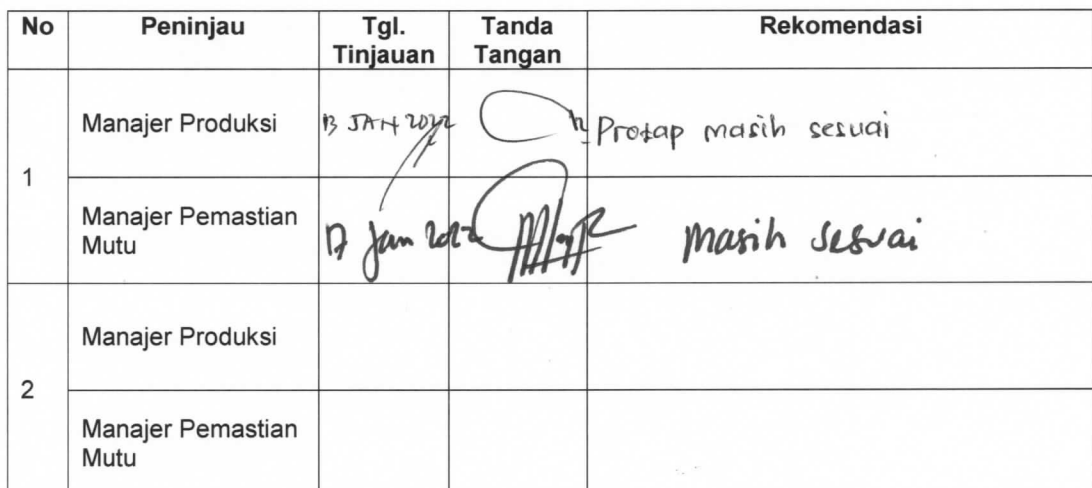 No Peninjau Tgl. Tinjauan Tanda Tangan Rekomendasi
1
Manajer Produksi 13 JAN 2022 Protap masih sesuai
Manajer Pemastian Mutu 17 Jan 2022 masih sesuai
2
Manajer Produksi
Manajer Pemastian Mutu